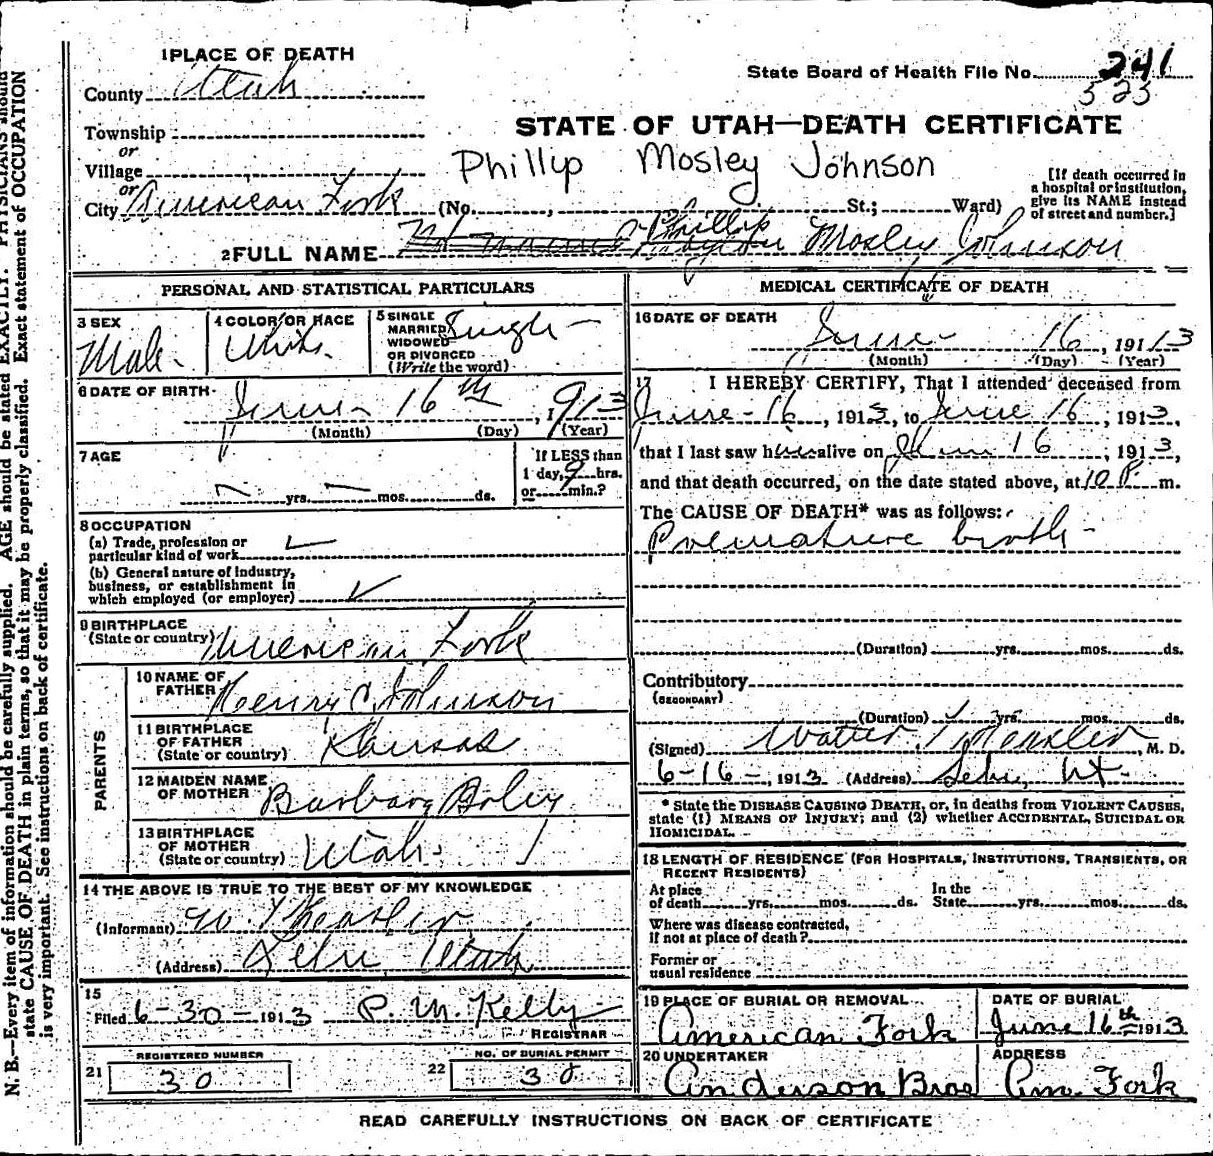 1 PLACE OF DEATH
County Utah
Township
or
Village
or
City American Fork (No. , St.; Ward)
State Board of Health File No. 241
525
STATE OF UTAH—DEATH CERTIFICATE
Phillip Mosley Johnson
[If death occurred in
a hospital or institution,
give its NAME instead
of street and number.]
Phillip
2 FULL NAME Mosley Johnson
PERSONAL AND STATISTICAL PARTICULARS
3 SEX
Male
4 COLOR OR RACE
White
5 SINGLE
MARRIED
WIDOWED
OR DIVORCED
(Write the word)
Single
6 DATE OF BIRTH
June 16th, 1913
(Month) (Day) (Year)
7 AGE
yrs. mos. ds.
If LESS than
1 day, 9 hrs.
or min.?
8 OCCUPATION
(a) Trade, profession or
particular kind of work
(b) General nature of industry,
business, or establishment in
which employed (or employer)
9 BIRTHPLACE
(State or country) American Fork
PARENTS
10 NAME OF
FATHER Henry C. Johnson
11 BIRTHPLACE
OF FATHER
(State or country) Kansas
12 MAIDEN NAME
OF MOTHER Barbara Boley
13 BIRTHPLACE
OF MOTHER
(State or country) Utah
14 THE ABOVE IS TRUE TO THE BEST OF MY KNOWLEDGE
(Informant) W. T. Hasler
(Address) Lehi, Utah
15
Filed 6-30-1913 P. M. Kelly
REGISTRAR
REGISTERED NUMBER
21 30
NO. OF BURIAL PERMIT
22 30
MEDICAL CERTIFICATE OF DEATH
16 DATE OF DEATH
June 16, 1913
(Month) (Day) (Year)
17 I HEREBY CERTIFY, That I attended deceased from
June-16, 1913, to June 16, 1913,
that I last saw him alive on June 16, 1913,
and that death occurred, on the date stated above, at 10 P m.
The CAUSE OF DEATH* was as follows:
Premature birth
(Duration) yrs. mos. ds.
Contributory
(SECONDARY)
(Duration) yrs. mos. ds.
(Signed) Walter T. Hasler, M. D.
6-16-, 1913 (Address) Lehi, Ut.
* State the DISEASE CAUSING DEATH, or, in deaths from VIOLENT CAUSES,
state (1) MEANS OF INJURY; and (2) whether ACCIDENTAL, SUICIDAL OR
HOMICIDAL.
18 LENGTH OF RESIDENCE (FOR HOSPITALS, INSTITUTIONS, TRANSIENTS, OR
RECENT RESIDENTS)
At place
of death yrs. mos. ds.
In the
State yrs. mos. ds.
Where was disease contracted,
if not at place of death?
Former or
usual residence
19 PLACE OF BURIAL OR REMOVAL
American Fork
DATE OF BURIAL
June 16th 1913
20 UNDERTAKER
Anderson Bros
ADDRESS
Am. Fork
READ CAREFULLY INSTRUCTIONS ON BACK OF CERTIFICATE
N. B.—Every item of information should be carefully supplied. AGE should be stated EXACTLY. PHYSICIANS should
state CAUSE OF DEATH in plain terms, so that it may be properly classified. Exact statement of OCCUPATION
is very important. See instructions on back of certificate.